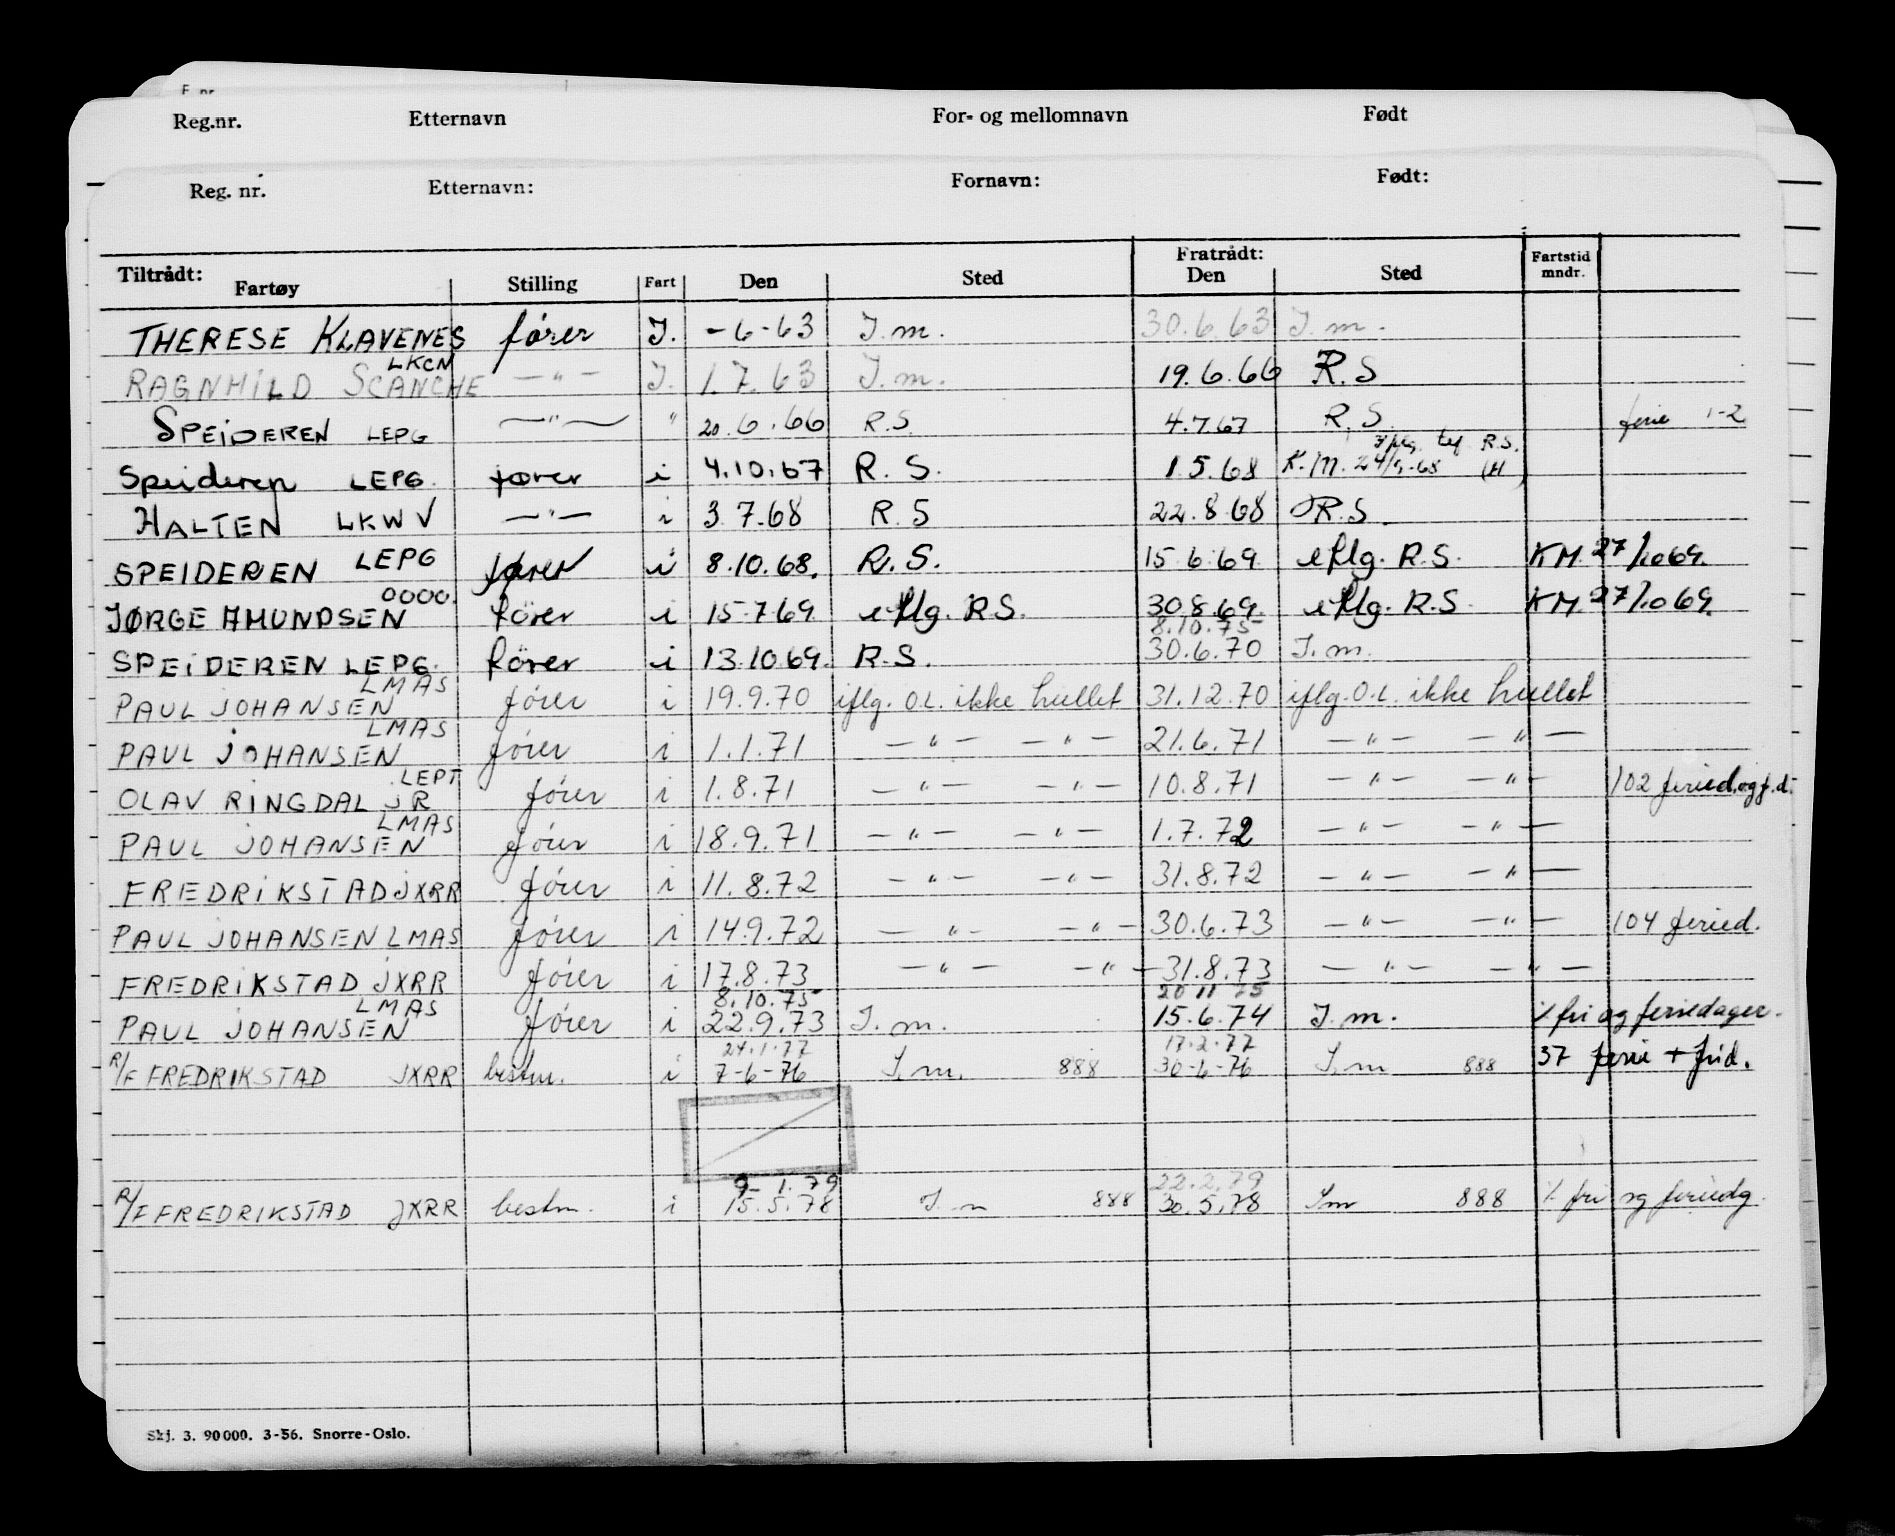 F. nr.
Reg.nr. Etternavn For- og mellomnavn Født
Reg. nr. Etternavn: Fornavn: Født:
Tiltrådt: Fratrådt:
Fartøy Stilling Fart Den Sted Den Sted Fartstid mndr.
THERESE KLAVENES fører I. -6-63 I.m. 30.6.63 I.m.
LKCN
RAGNHILD SCANCHE —"— I. 1.7.63 I.m. 19.6.66 R.S
SPEIDEREN LEPG —"— " 20.6.66 R.S. 4.7.67 R.S. ferie 1-2
Iflg. tlf. R.S.
Speideren LEPG. fører i 4.10.67 R.S. 1.5.68 K.M. 24/9-68 (H)
HALTEN LKWV —"— i 3.7.68 R.S 22.8.68 R.S.
SPEIDEREN LEPG fører i 8.10.68. R.S. 15.6.69 iflg. R.S. KM. 27/10 69.
0000.
JØRGE AMUNDSEN fører i 15-7-69. iflg. R.S. 30.8.69. iflg. R.S. KM 27/10 69.
8.10.75
SPEIDEREN LEPG. fører i 13.10.69. R.S. 30.6.70 I.m.
LMAS
PAUL JOHANSEN fører i 19.9.70 iflg. O.L. ikke hullet 31.12.70 iflg. O.L. ikke hullet
LMAS
PAUL JOHANSEN fører i 1.1.71 —"— —"— 21.6.71 —"— —"—
LEPT
OLAV RINGDAL JR fører i 1.8.71 —"— —"— 10.8.71 —"— —"— 102 feried.og f.d.
LMAS
PAUL JOHANSEN fører i 18.9.71 —"— —"— 1.7.72 —"— —"—
FREDRIKSTAD JXRR fører i 11.8.72 —"— —"— 31.8.72 —"— —"—
PAUL JOHANSEN LMAS fører i 14.9.72 —"— —"— 30.6.73 —"— —"— 104 feried.
FREDRIKSTAD JXRR fører i 17.8.73 —"— —"— 31.8.73 —"— —"—
LMAS 8.10.75 20 11 75
PAUL JOHANSEN fører i 22.9.73 I.m. 15.6.74 I.m. % fri og feriedager.
24.1.77 17.2.77
R/F FREDRIKSTAD JXRR bestm. i 7-6-76 I.m. 888 30-6-76 I.m 888 37 ferie + frid.
9-1.79 22.2.79
R/F FREDRIKSTAD JXRR bestm. i 15.5.78 I.m 888 30.5.78 Im 888 % fri og feriedg.
Skj. 3. 90000. 3-56. Snorre-Oslo.